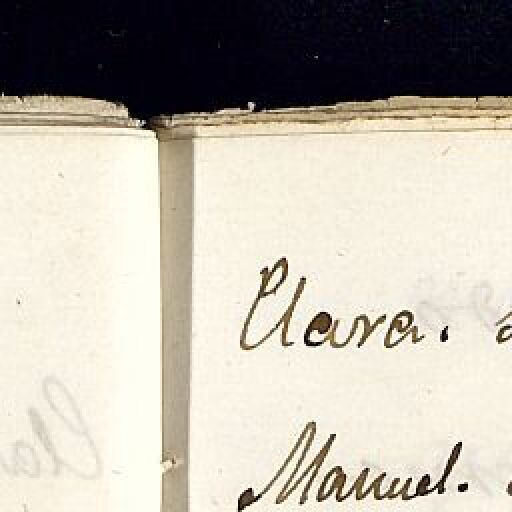 Clara.
Manuel.